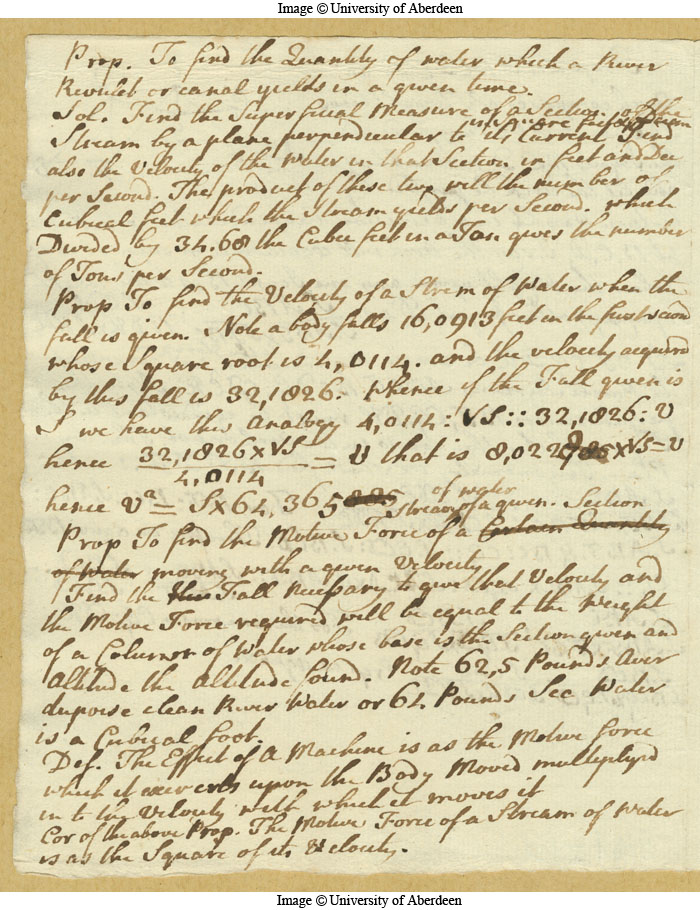 Image © University of Aberdeen
Prop. To find the Quantity of water which a River
Revulet or canal yields in a given time.
Sol. Find the Superficial Measure of a Section of the
Stream by a plane perpendicular to its Current Find
in square feet
also the Velocity of the Water in that Section in feet and Dec
per Second. The product of these two will the number of
Cubical feet which the Stream yields per Second. which
Divided by 34.68 the Cubic feet in a Tun gives the number
of Tons per Second.
Prop To find the Velocity of a Strem of Water when the
fall is given. Note a body falls 16,0913 feet in the first second
whose Square root is 4,0114. and the velocity acquired
by this fall is 32,1826. Whence if the Fall given is
S we have this Analogy 4,0114 : √S :: 32,1826 : V
hence 32,1826×√S/4,0114 = V that is 8,0229 ×√S=V
hence V² = S×64,365
of water
Stream of a given Section
Prop To find the Motive Force of a Certain Quantity
of Water moving with a given Velocity
Find the Fall necessary to give that Velocity and
the Motive Force required will be equal to the Weight
of a Column of Water whose base is the Section given and
Altitude the Altitude found. Note 62,5 Pounds Aver
dupoise clean River Water or 64 Pounds Sea Water
is a Cubical foot.
Def. The Effect of a Machine is as the Motive force
which it exerts upon the Body Moved multiplyd
in to the Velocity with which it moves it
Cor of the above Prop. The Motive Force of a Stream of Water
is as the Square of its Velocity.
Image © University of Aberdeen